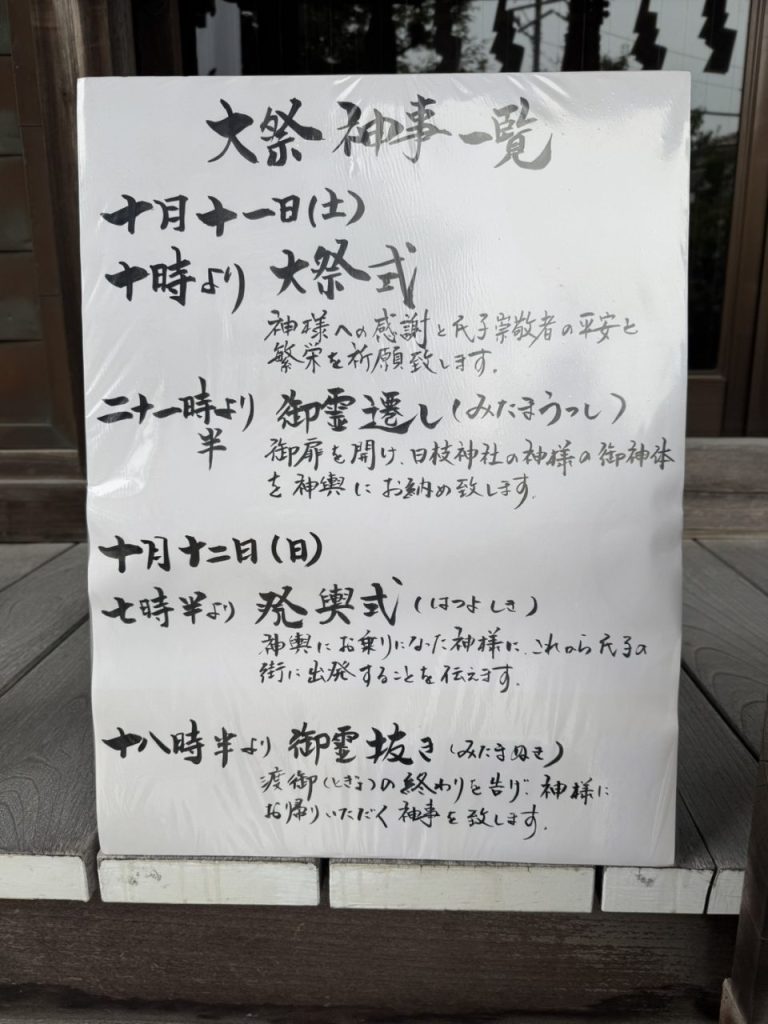 大祭神事一覧
十月十一日(土)
十時より 大祭式
神様への感謝と氏子崇敬者の平安と
繁栄を祈願致します。
二十一時半より 御霊遷し(みたまうつし)
御扉を開け、日枝神社の神様の御神体
を神輿にお納め致します。
十月十二日(日)
七時半より 発輿式(はつよしき)
神輿にお乗りになった神様に、これから氏子の
街に出発することを伝えます。
十八時半より 御霊抜き(みたまぬき)
渡御(とぎょ)の終わりを告げ、神様に
お帰りいただく神事を致します。